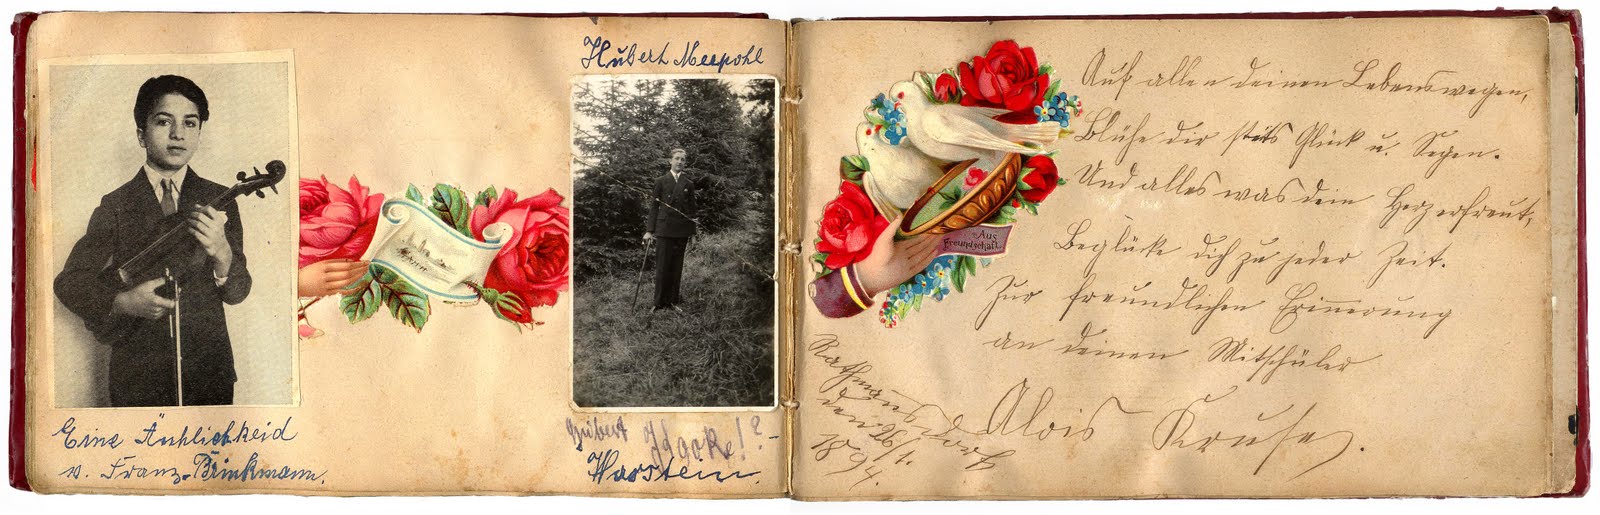 Hubert Meepohl
Eine Ähnlichkeid
v. Franz-Brinkmann.
Hubert
!?
Warstein.
Auf allen deinen Lebenswegen,
Blühe dir stets Glück u. Segen.
Und alles was dein Herz erfreut,
Beglücke dich zu jeder Zeit.
Zur freundlichen Erinnerung
an deinen Mitschüler
Alois Kruse.
Aus
Freundschaft.
Rathmansdorf
den 26/1.
1894.